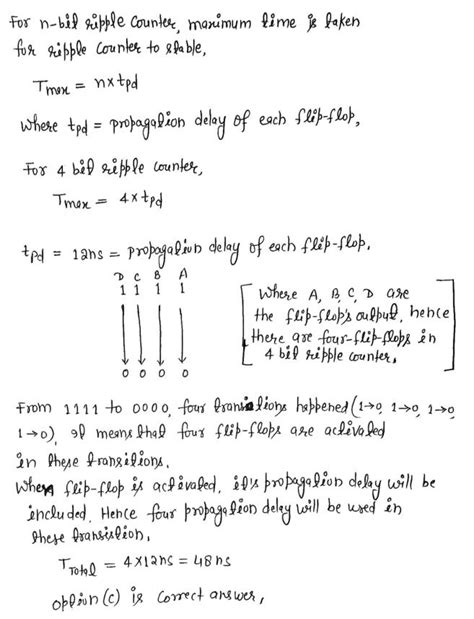 For n-bit ripple counter, maximum time is taken
for ripple counter to stable,
Tmax = n×tpd
where tpd = propagation delay of each flip-flop,
For 4 bit ripple counter,
Tmax = 4×tpd
tpd = 12ns = propagation delay of each flip-flop.
D C B A
1 1 1 1
0 0 0 0
[Where A, B, C, D are
the flip-flop's output, hence
there are four-flip-flops in
4 bit ripple counter,]
From 1111 to 0000, four transitions happened (1→0, 1→0, 1→0,
1→0), It means that four flip-flops are activated
in these transitions.
When flip-flop is activated, it's propagation delay will be
included. Hence four propagation delay will be used in
these transistion,
TTotal = 4×12ns = 48ns
option (c) is correct answer,